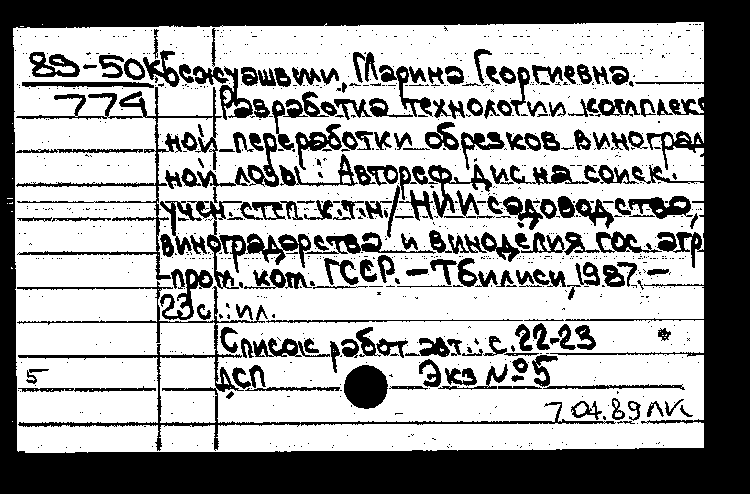 89-50к Бежуашвили, Марина Георгиевна.
774 Разработка технологии комплекс
ной переработки обрезков виноград
ной лозы : Автореф. дис на соиск.
учен. степ. к.т.н. / НИИ садоводства,
виноградарства и виноделия гос. агр
-пром. ком. ГССР. — Тбилиси, 1987. —
23 с. : ил.
Список работ авт.: с. 22-23 *
5 ДСП Экз №5
7.04.89